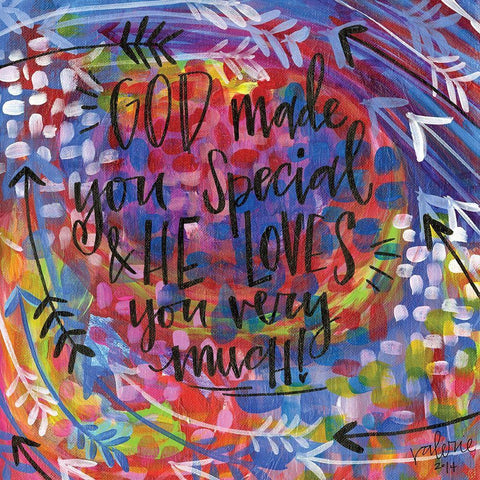 GOD made
you Special
& HE LOVES
you very
much!
valerie
2014